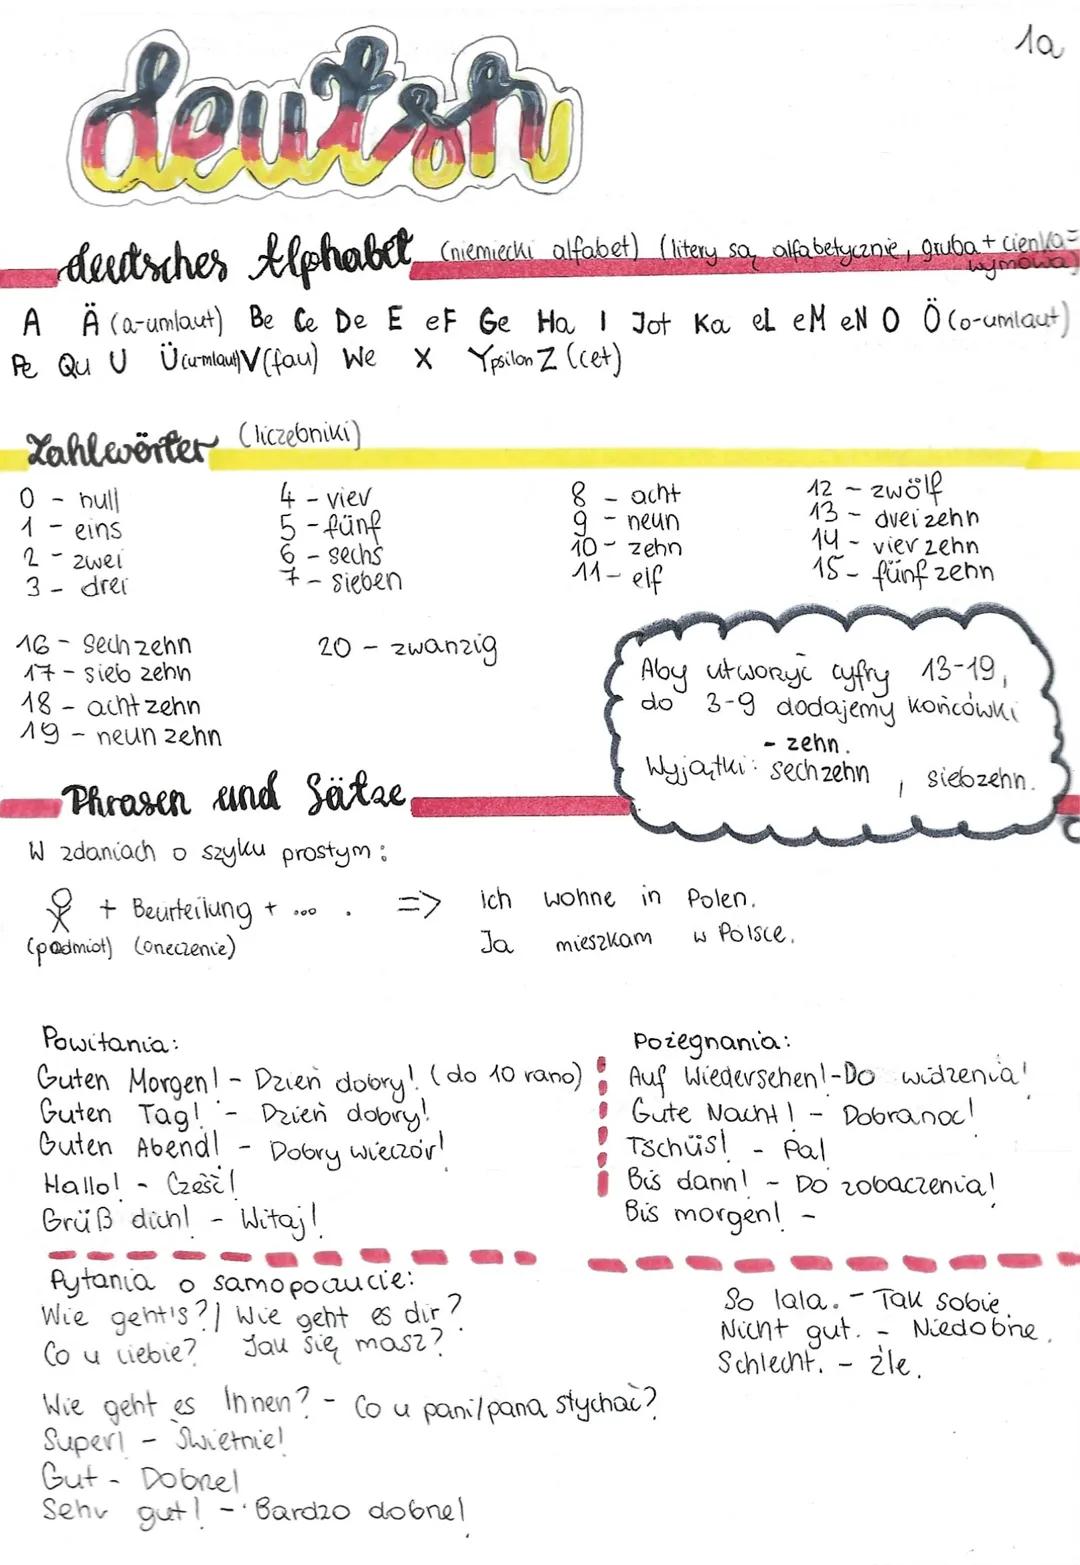 1a
deutsh
deutsches Alphabet (niemiecki alfabet) (litery są alfabetycznie, gruba + cienka = wymowa)
A Ä (a-umlaut) Be Ce De E eF Ge Ha I Jot Ka eL eM eN O Ö (o-umlaut)
Pe Qu U Ü (u-mlaut) V (fau) We X Ypsilon Z (cet)
Zahlwörter (liczebniki)
0 - null
1 - eins
2 - zwei
3 - drei
4 - vier
5 - fünf
6 - sechs
7 - sieben
8 - acht
9 - neun
10 - zehn
11 - elf
12 - zwölf
13 - dreizehn
14 - vierzehn
15 - fünfzehn
16 - sechzehn
17 - siebzehn
18 - achtzehn
19 - neunzehn
20 - zwanzig
Aby utworzyć cyfry 13-19,
do 3-9 dodajemy końcówki
- zehn.
Wyjątki: sechzehn , siebzehn.
Phrasen und Sätze
W zdaniach o szyku prostym:
+ Beurteilung + ... . => ich wohne in Polen.
(podmiot) (oneczenie) Ja mieszkam w Polsce.
Powitania:
Guten Morgen! - Dzień dobry! (do 10 rano)
Guten Tag! - Dzień dobry!
Guten Abend! - Dobry wieczór!
Hallo! - Cześć!
Grüß dich! - Witaj!
Pożegnania:
Auf Wiedersehen! - Do widzenia!
Gute Nacht! - Dobranoc!
Tschüs! - Pa!
Bis dann! - Do zobaczenia!
Bis morgen! -
Pytania o samopoczucie:
Wie geht's? / Wie geht es dir?
Co u ciebie? Jak się masz?
Wie geht es Innen? - Co u pani/pana słychać?
Super! - Świetnie!
Gut - Dobrze!
Sehr gut! - Bardzo dobrze!
So lala. - Tak sobie.
Nicht gut. - Niedobrze.
Schlecht. - źle.